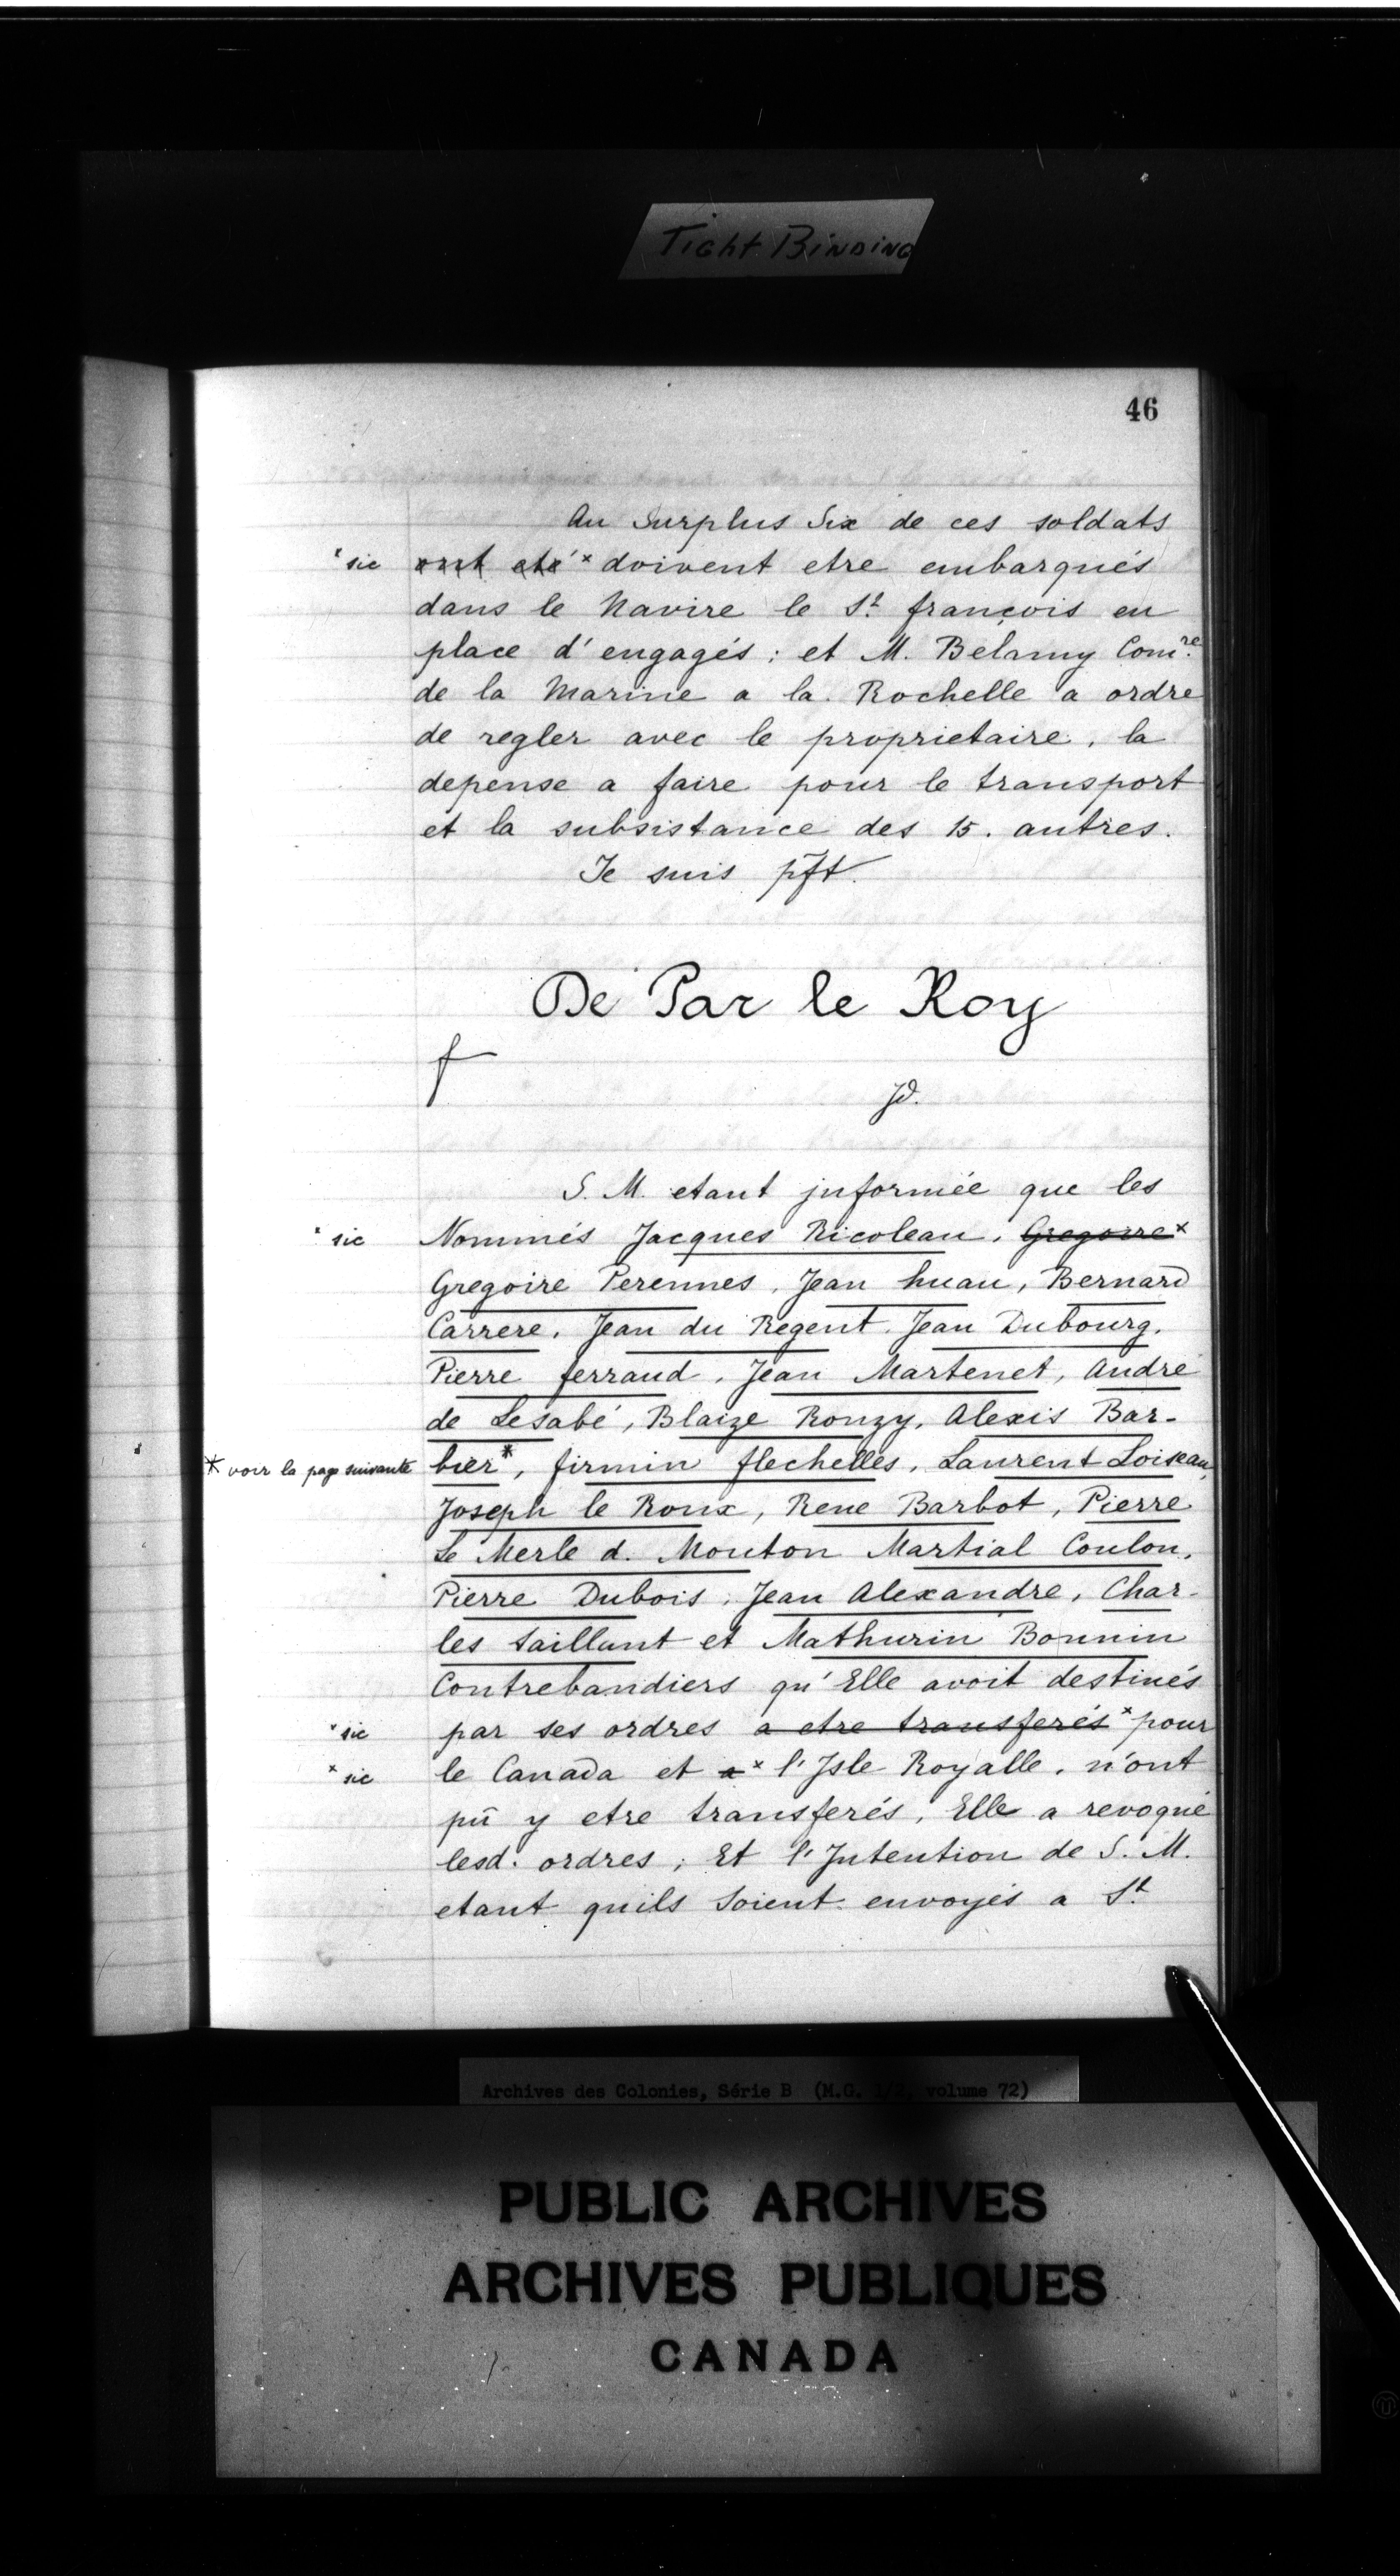 Tight Binding
46
Au Surplus Six de ces soldats
* sic ont eté * doivent etre embarqués
dans le Navire le St. françois en
place d'engagés ; et M. Belamy Comre.
de la Marine a la Rochelle a ordre
de regler avec le proprietaire, la
depense a faire pour le transport
et la subsistance des 15. autres.
Je suis pft.
De Par le Roy
f
Jd.
S. M. etant jnformée que les
* sic Nommés Jacques Ricoleau, Gregoire *
Gregoire Perennes, Jean huau, Bernard
Carrere, Jean du Regent, Jean Dubourg,
Pierre ferraud, Jean Martenet, André
de Lesabé, Blaize Rouzy, Alexis Bar-
* voir la page suivante bier *, firmin flechelles, Laurent Loiseau,
Joseph le Roux, Rene Barbot, Pierre
Le Merle d. Mouton Martial Coulon,
Pierre Dubois, Jean Alexandre, Char-
les Saillant et Mathurin Bonnin
Contrebandiers qu'Elle avoit destinés
* sic par ses ordres a etre transferés * pour
* sic le Canada et a * l'Jsle Royalle, n'ont
pû y etre transferés, Elle a revoqué
lesd. ordres ; Et l'Jntention de S. M.
etant quils Soient envoyés a St.
Archives des Colonies, Série B (M.G. 1/2, volume 72)
PUBLIC ARCHIVES
ARCHIVES PUBLIQUES
CANADA